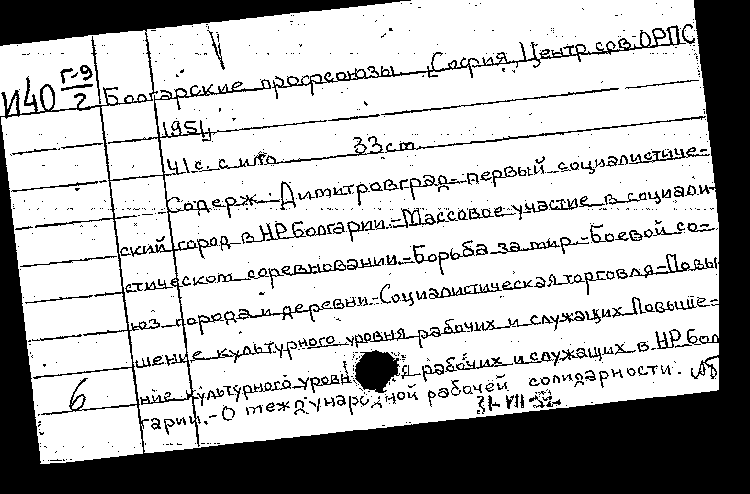 И40 Г-9/2 Болгарские профсоюзы. София, Центр. сов. ОРПС
1954
41 с. с илл. 33 см.
Содерж.: Димитровград - первый социалистиче-
ский город в НР Болгарии. - Массовое участие в социали-
стическом соревновании. - Борьба за мир. - Боевой со-
юз города и деревни. - Социалистическая торговля - Повы-
шение культурного уровня рабочих и служащих Повыше-
ние культурного уровня рабочих и служащих в НР Бол
гарии. - О международной рабочей солидарности.
6
31-VII-52